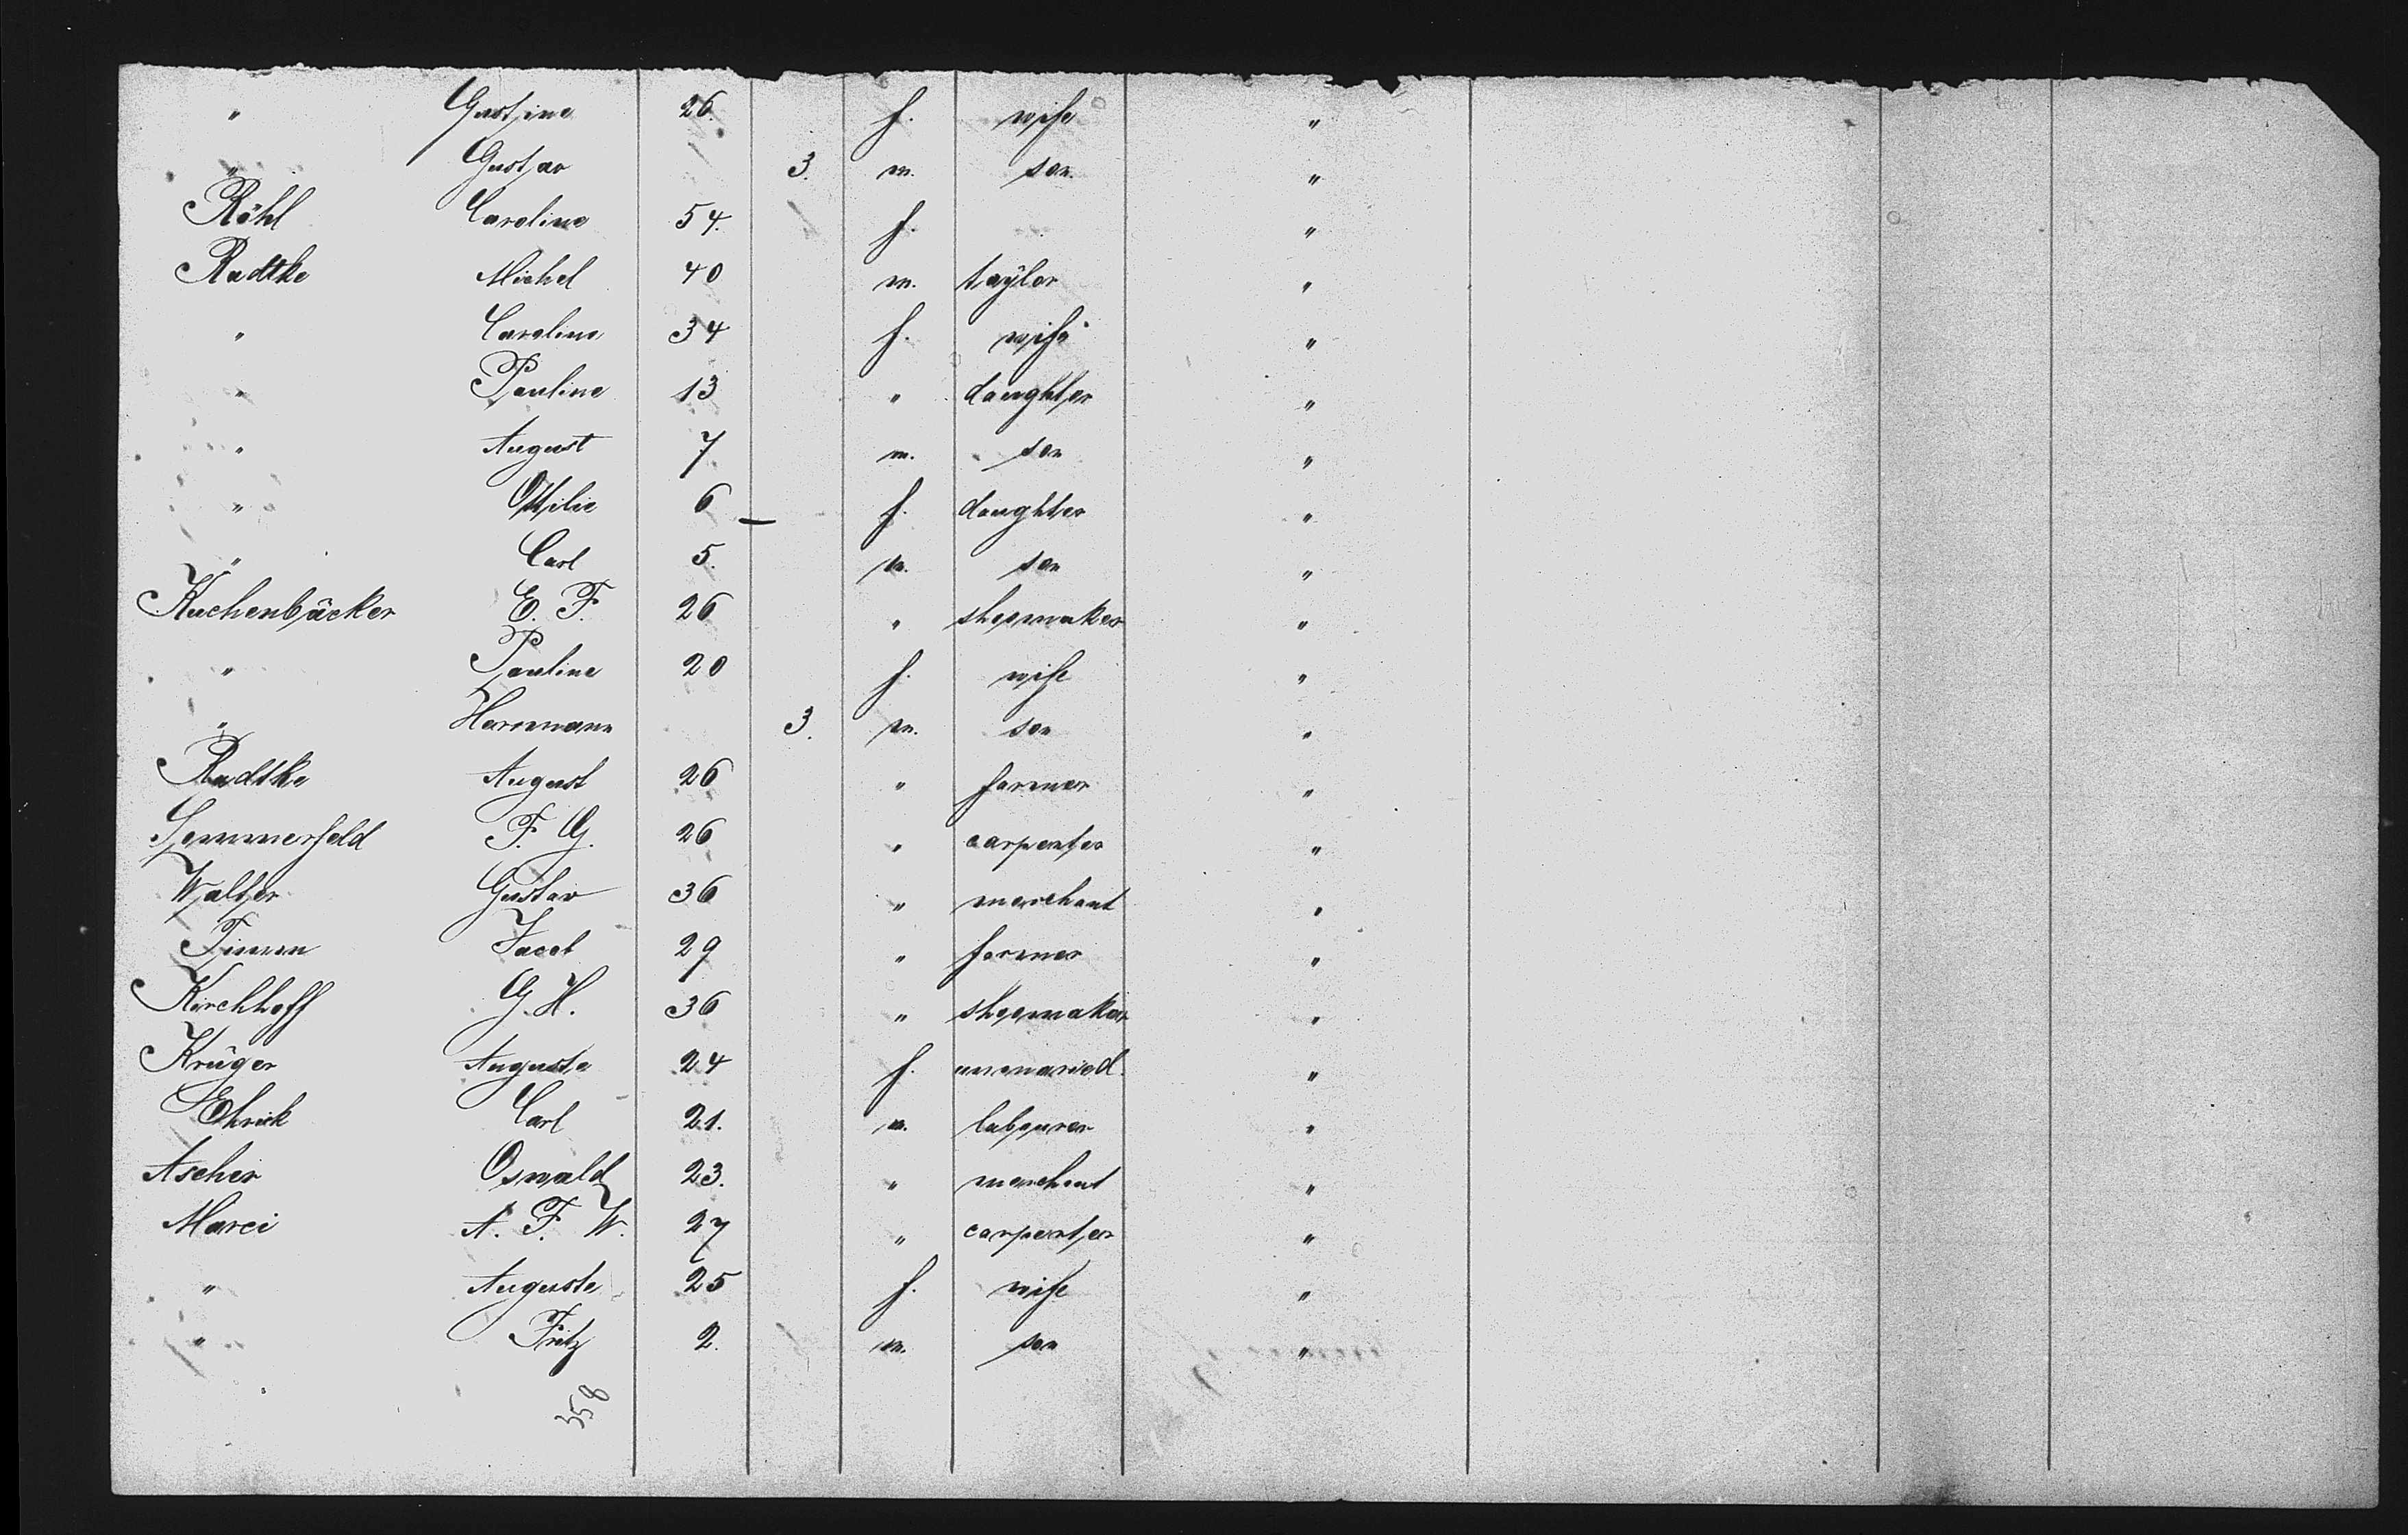 " Gustine 26. f. wife "
" Gustav 3. m. son. "
Röhl Caroline 54. f. "
Radtke Michel 40 m. taylor "
" Caroline 34 f. wife "
" Pauline 13 " daughter "
" August 7 m. son "
" Ottilie 6 f. daughter "
" Carl 5. m. son "
Kuchenbäcker E. F. 26 " shoemaker "
" Pauline 20 f. wife "
" Herrmann 3. m. son "
Radtke August 26 " farmer "
Sommerfeld F. G. 26 " carpenter "
Walter Gustav 36 " merchant "
Timm Jacob 29 " farmer "
Kirchhoff G. H. 36 " shoemaker "
Krüger Auguste 24 f. unmaried. "
Carl 21. m. labourer "
Ascher Oswald 23. " merchant "
Marci A. F. W. 27 " carpenter "
" Auguste 25 f. wife "
" Fritz 2. m. son "
358